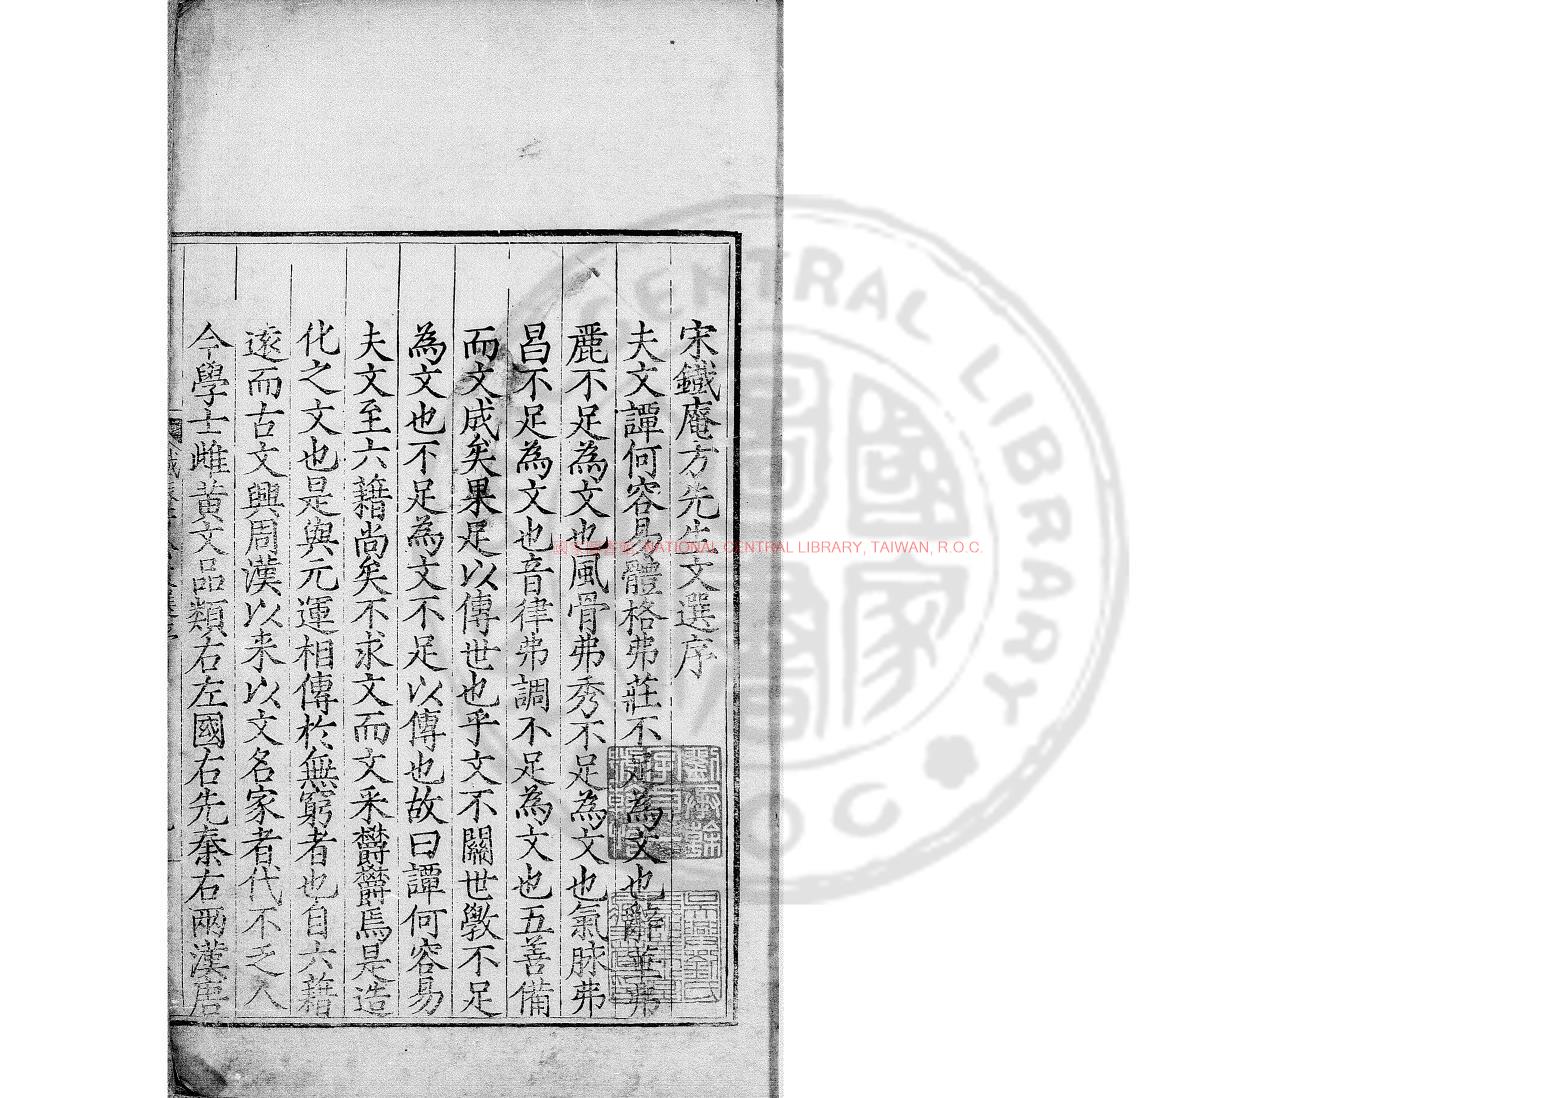 宋鐵庵方先生文選序
夫文譚何容易體格弗莊不足為文也辭華弗
麗不足為文也風骨弗秀不足為文也氣脉弗
昌不足為文也音律弗調不足為文也五善備
而文成矣果足以傳世也乎文不關世敎不足
為文也不足為文不足以傳也故曰譚何容易
夫文至六籍尚矣不求文而文采欝欝焉是造
化之文也是與元運相傳於無窮者也自六籍
遂而古文興周漢以来以文名家者代不乏人
今學士雌黄文品類右左國右先秦右兩漢唐
國家圖書館, NATIONAL CENTRAL LIBRARY, TAIWAN, R.O.C.
NATIONAL CENTRAL LIBRARY
ROC
國家圖書